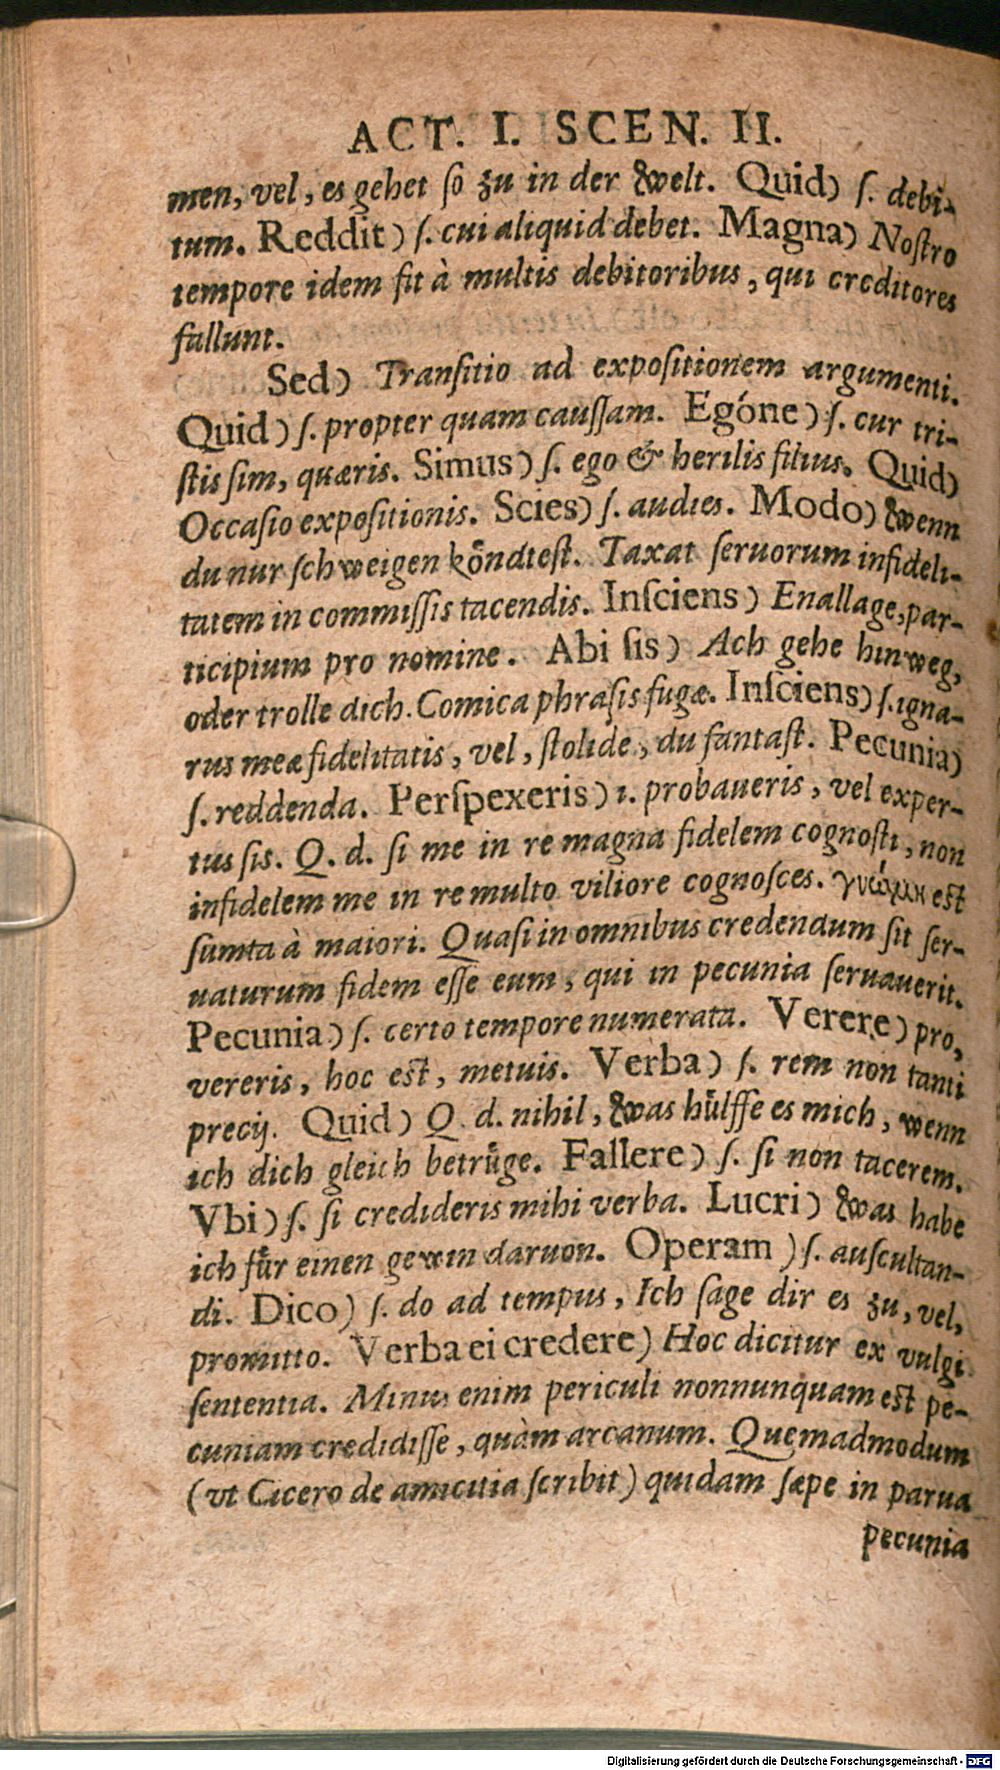 ACT. I. SCEN. II.
men, vel, es gehet ſo zu in der welt. Quid) ſ. debi-
tum. Reddit) ſ. cui aliquid debet. Magna) Noſtro
tempore idem fit à multis debitoribus, qui creditores
fallunt.
Sed) Tranſitio ad expoſitionem argumenti.
Quid) ſ. propter quam cauſſam. Egóne) ſ. cur tri-
ſtis ſim, quæris. Simus) ſ. ego & herilis filius. Quid)
Occaſio expoſitionis. Scies) ſ. audies. Modo) wenn
du nur ſchweigen koͤndteſt. Taxat ſeruorum infideli-
tatem in commiſſis tacendis. Inſciens) Enallage, par-
ticipium pro nomine. Abi ſis) Ach gehe hinweg,
oder trolle dich. Comica phraſis fugæ. Inſciens) ſ. igna-
rus meæ fidelitatis, vel, ſtolide, du fantaſt. Pecunia)
ſ. reddenda. Perſpexeris) i. probaueris, vel exper-
tus ſis. Q. d. ſi me in re magna fidelem cognoſti, non
infidelem me in re multo viliore cognoſces. γνώμη eſt
ſumta à maiori. Quaſi in omnibus credendum ſit ſer-
uaturum fidem eſſe eum, qui in pecunia ſeruauerit.
Pecunia) ſ. certo tempore numerata. Verere) pro,
vereris, hoc eſt, metuis. Verba) ſ. rem non tanti
precij. Quid) Q. d. nihil, was huͤlffe es mich, wenn
ich dich gleich betruͤge. Fallere) ſ. ſi non tacerem.
Vbi) ſ. ſi credideris mihi verba. Lucri) was habe
ich fuͤr einen gewin daruon. Operam) ſ. auſcultan-
di. Dico) ſ. do ad tempus, Ich ſage dir es zu, vel,
promitto. Verba ei credere) Hoc dicitur ex vulgi
ſententia. Minus enim periculi nonnunquam eſt pe-
cuniam credidiſſe, quàm arcanum. Quemadmodum
(vt Cicero de amicitia ſcribit) quidam ſæpe in parua
pecunia
Digitalisierung gefördert durch die Deutsche Forschungsgemeinschaft - DFG